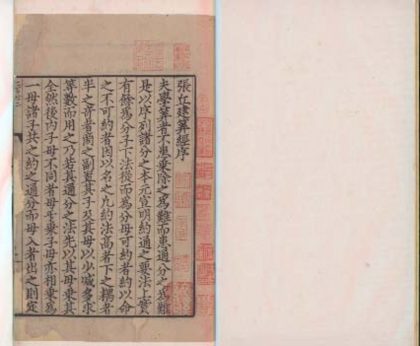 張丘建筭經序
夫學筭者不患乗除之為難而患通分之為難
是以序列諸分之本元宣明約通之要法上實
有餘為分子下法從而為分母可約者約以命
之不可約者因以名之凡約法高者下之耦者
半之竒者商之副置其子及其母以少減多求
等數而用之乃若其通分之法先以其母乗其
全然後内子母不同者母互乗子母亦相乗為
一母諸子共之約之通分而母入者出之則定